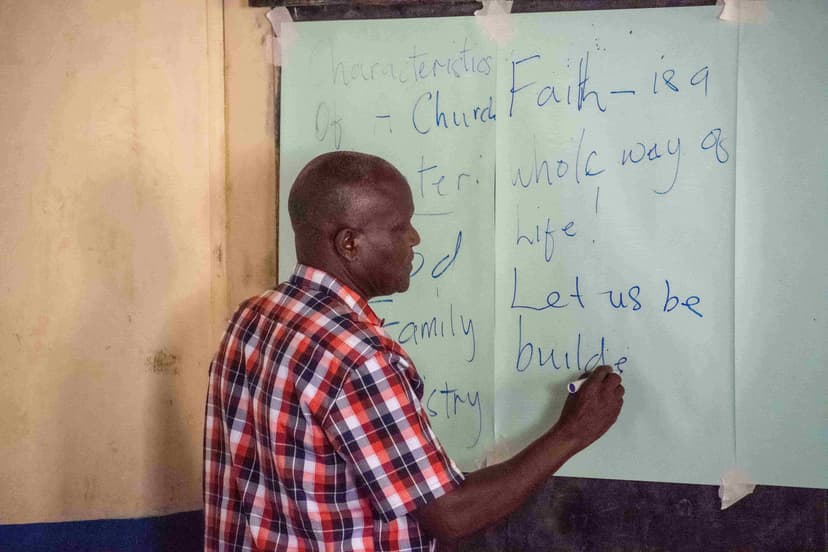 Characteristics
Of a Church
teri
od
Family
istry
Faith – is a
whole way of
Life!
Let us be
builde